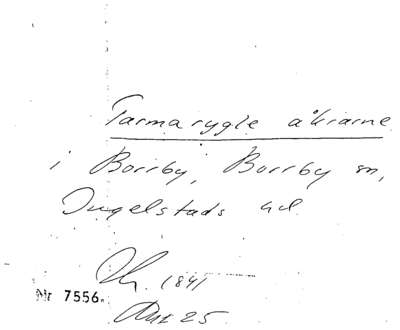 Tarmarygle åkrarne
i Borrby, Borrby sn,
Ingelstads hd.
1841
Nr 7556.
25